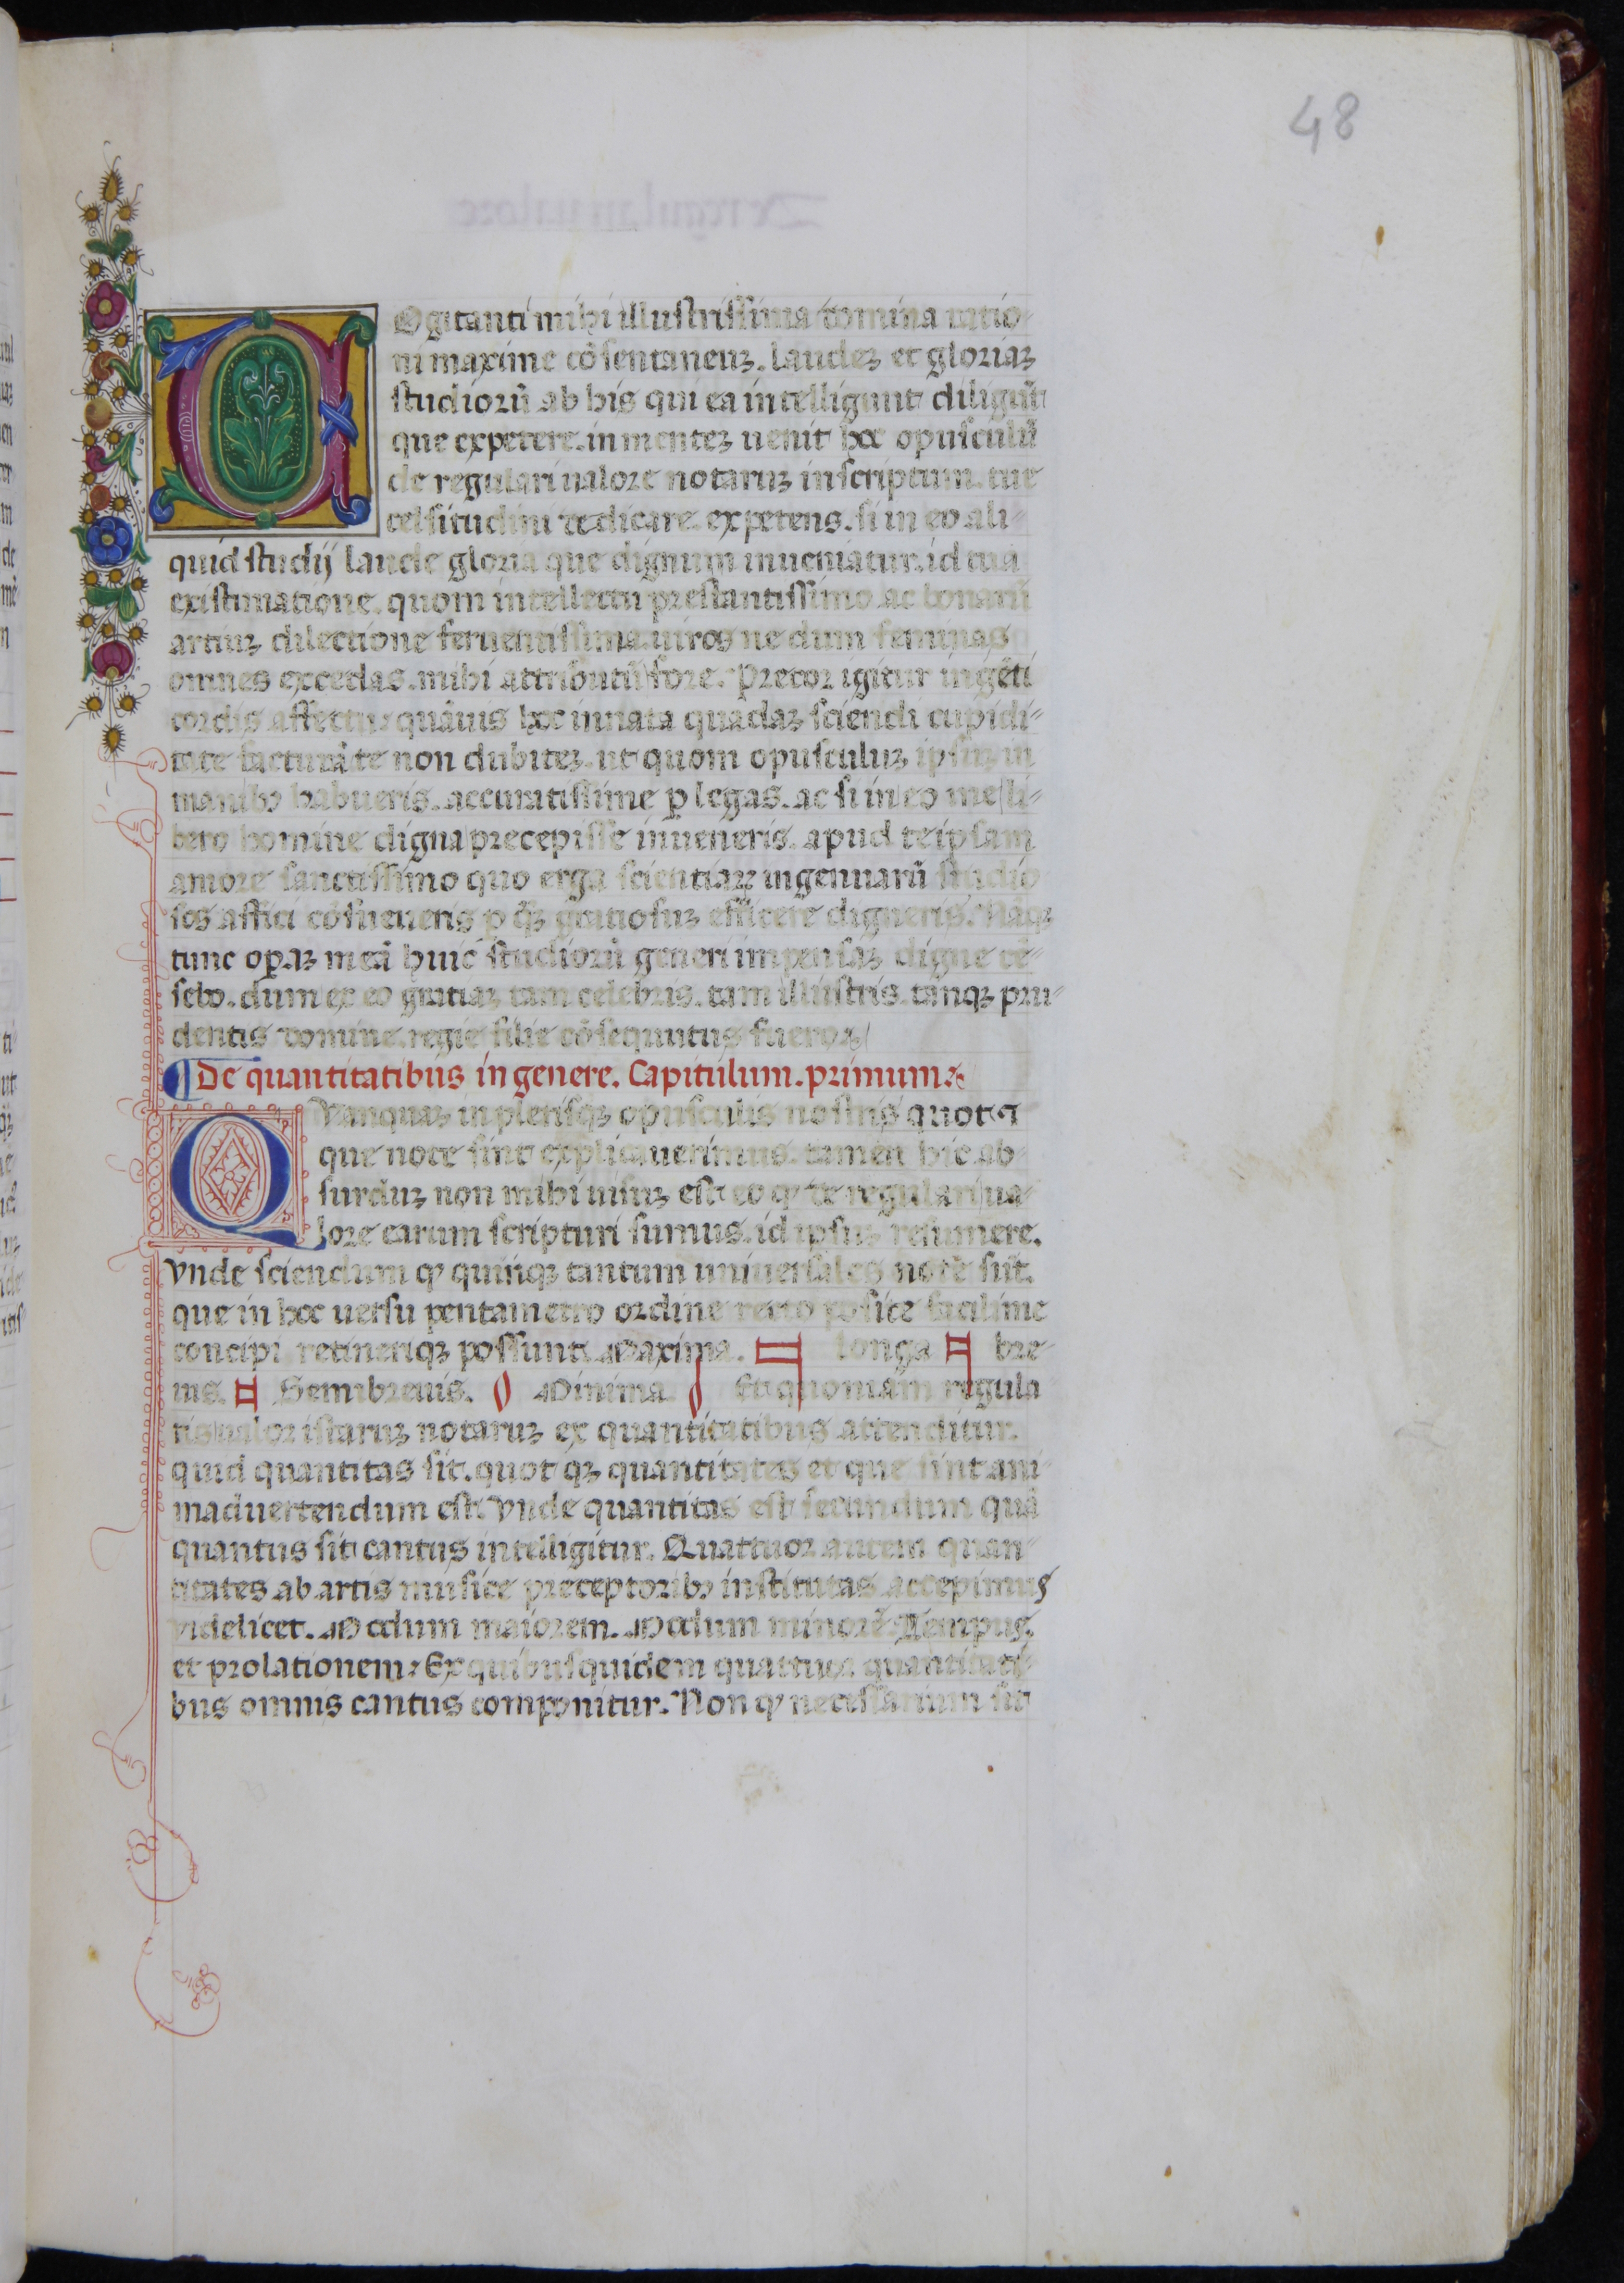 48
COgitanti mihi illustrissima domina ratio-
ni maxime cōsentaneuꝫ. laudeꝫ et gloriaꝫ
studiorū ab his qui ea intelligunt diligūt
que expetere. in menteꝫ uenit hoc opusculū
de regulari ualore notaruꝫ inscriptum. tue
celsitudini dedicare. expetens. si in eo ali-
quid studij laude gloria que dignum inueniatur. id tua
existimatione. quom intellectu prestantissimo ac bonarū
artiuꝫ dilectione feruentissima. uiros ne dum feminas
omnes excedas. mihi attributū fore. Precor igitur ingēti
cordis affectu. quāuis hoc innata quadaꝫ sciendi cupidi-
tate facturā te non dubiteꝫ. ut quom opusculuꝫ ipsuꝫ in
manibꝫ habueris. accuratissime ꝑ legas. ac si in eo me li-
bero homine digna precepisse inueneris. apud te ipsam
amore sanctissimo quo erga scientiaꝝ ingenuarū studio
sos affici cōsueueris ꝑ qꝫ gratiosuꝫ efficere digneris. Nāqꝫ
tunc oꝑaꝫ meā huic studiorū generi impensaꝫ digne cē-
sebo. dum ex eo gratiaꝫ tam celebris. tam illustris. tanqꝫ pru-
dentis domine. regie filie cōsequutus fuero.
¶ De quantitatibus in genere. Capitulum. primum.
QVanquaꝫ in plerisqꝫ opusculis nostris quot
que note sint explicauerimus. tamen hic ab
surduꝫ non mihi uisuꝫ est eo ꝙ de regulari ua-
lore earum scripturi sumus. id ipsuꝫ resumere.
Vnde sciendum ꝙ quinqꝫ tantum uniuersales note sūt.
que in hoc uersu pentametro ordine recto posite facilime
concipi retineriqꝫ possunt. Maxima. longa bre-
uis. Semibreuis. Minima. Et quoniam regula
ris ualor istaruꝫ notaruꝫ ex quantitatibus attenditur.
quid quantitas sit. quot qꝫ quantitates et que sint ani-
maduertendum est. Vnde quantitas est secundum quā
quantus sit cantus intelligitur. Quattuor autem quan-
titates ab artis musice preceptoribꝫ institutas accepimus
videlicet. Modum maiorem. Modum minorē. Tempus.
et prolationem. Ex quibusquidem quattuor quantitati-
bus omnis cantus componitur. Non ꝙ necessarium sit